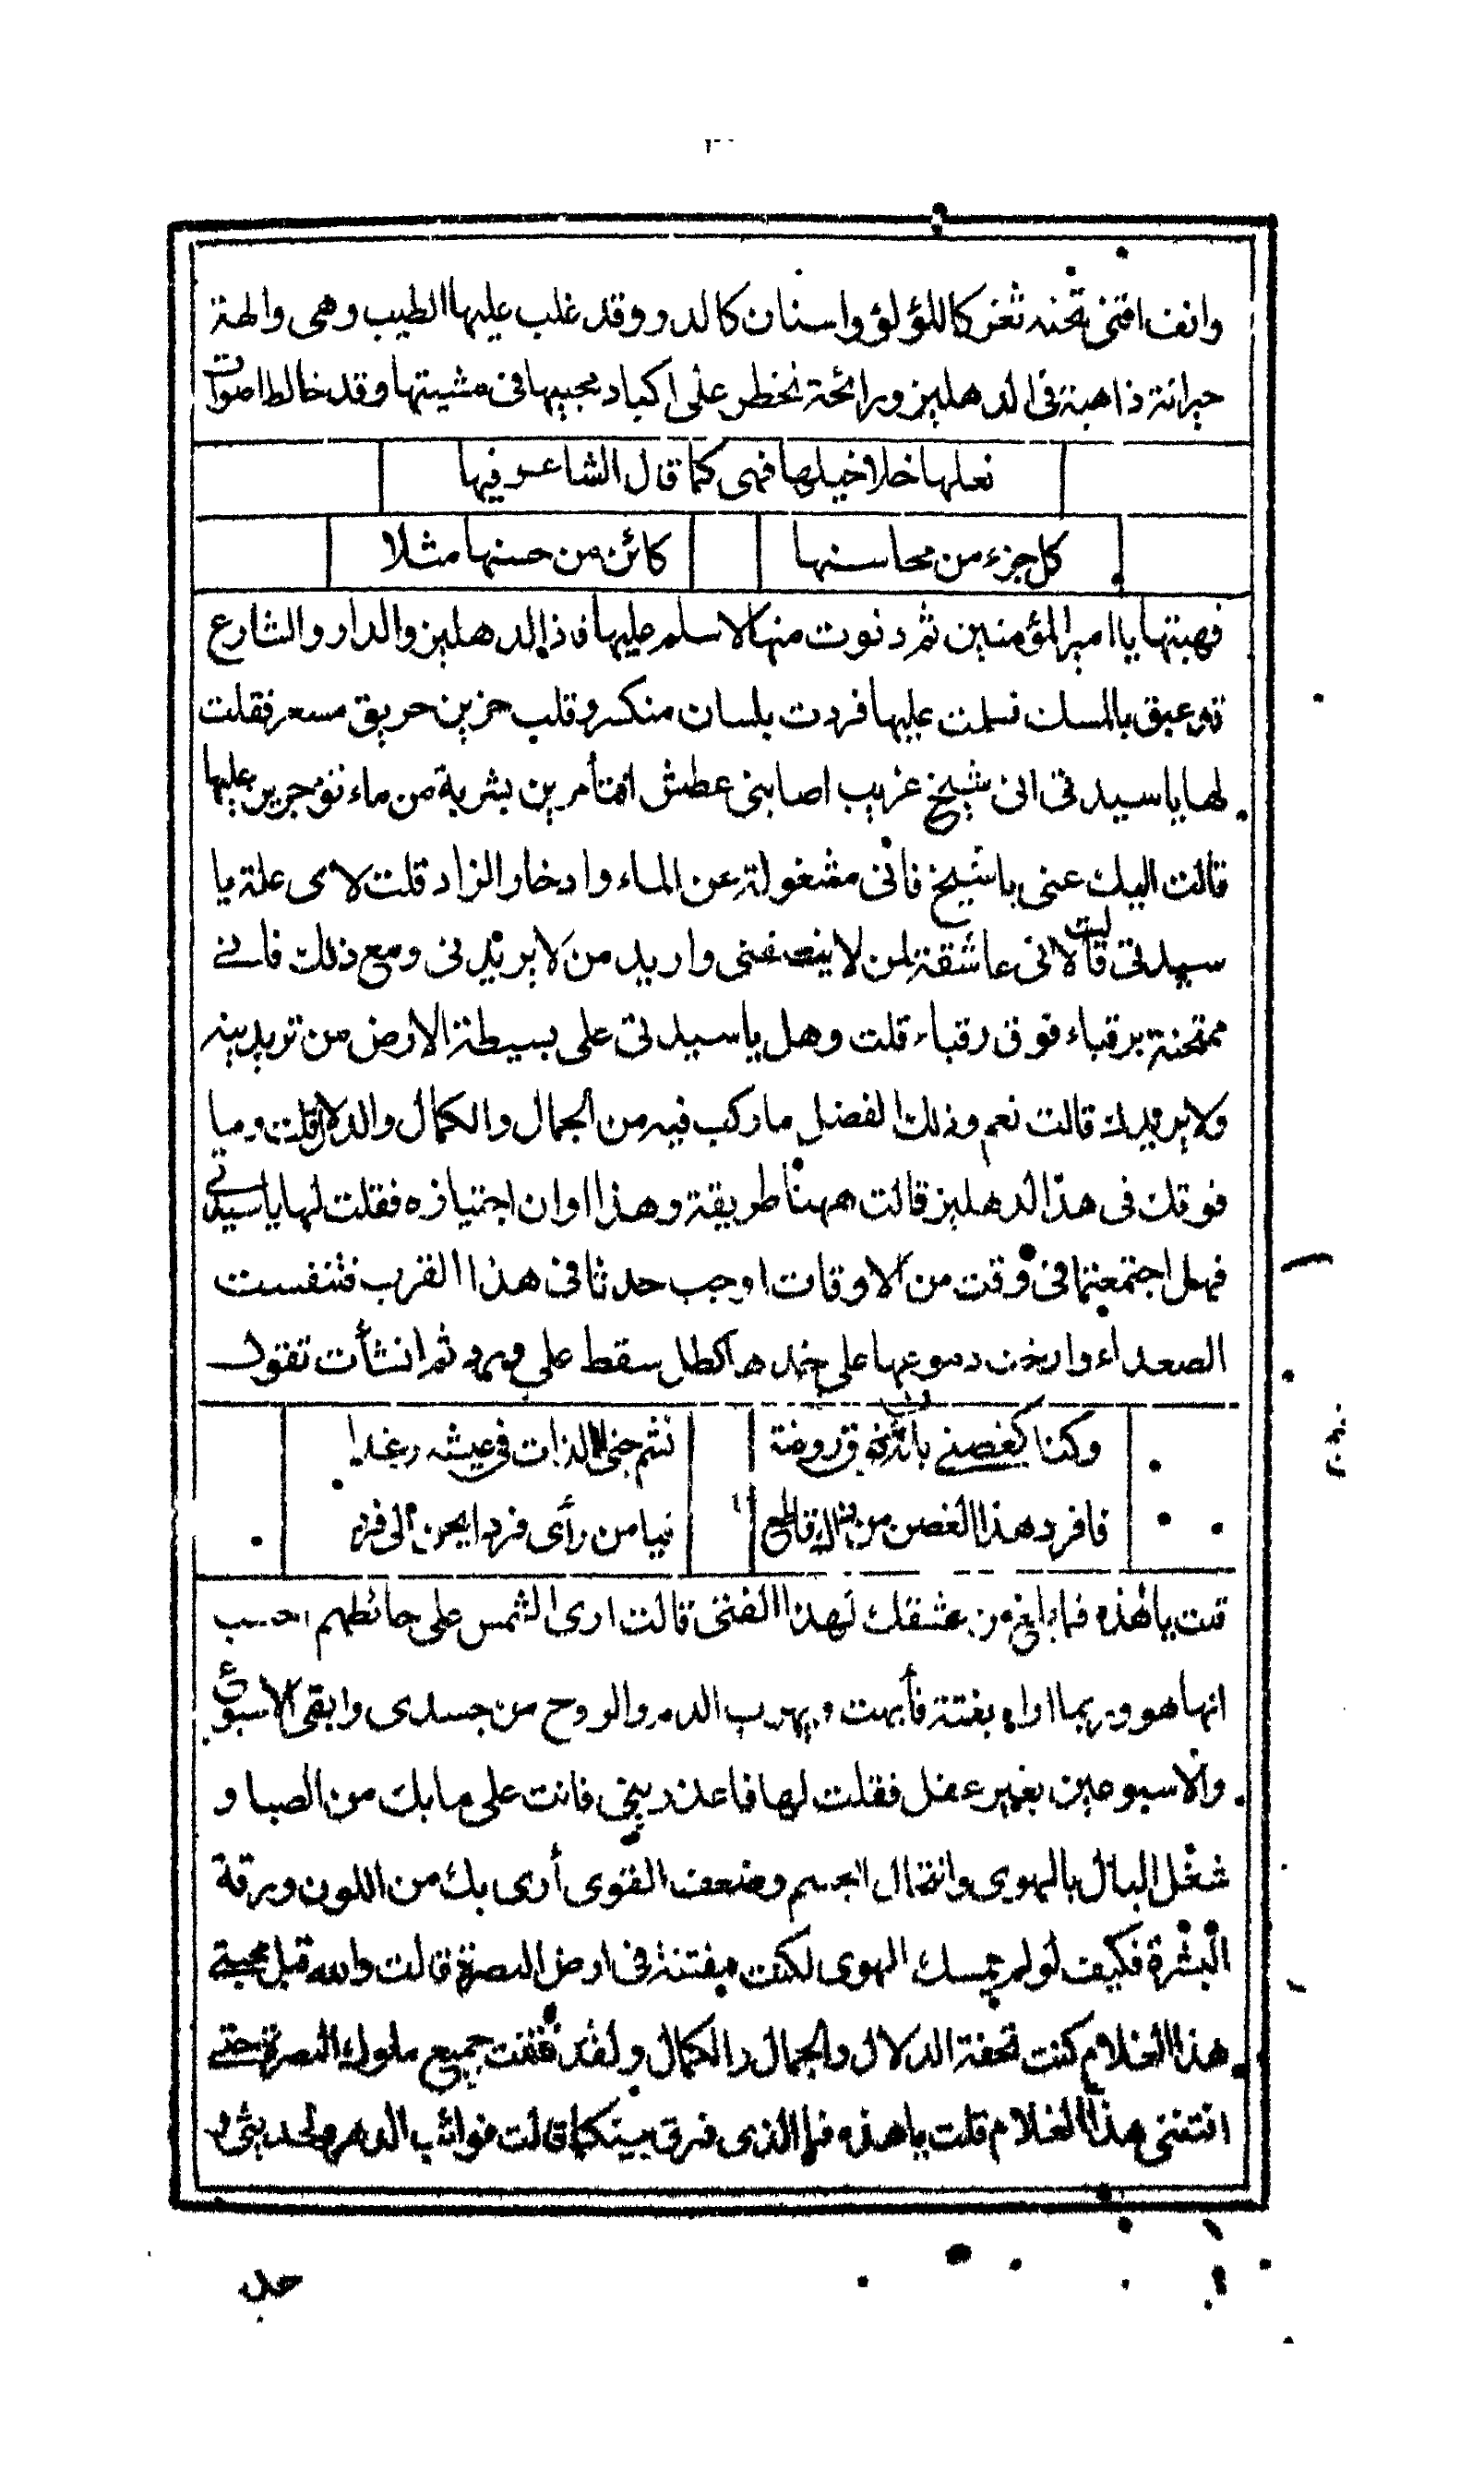 وانف اقنى تحته ثغر كاللؤلؤ واسنان كالدرر وقد غلب عليها الطيب وهى والهة
حيرانة ذاهبة فى الدهليز ورائحة تخطر على اكباد محبيها فى مشيتها وقد خالط اصوات
نعلها خلاخيلها فهى كما قال الشاعر فيها
كل جزء من محاسنها كائن من حسنها مثلا
فهبتها يا امير المؤمنين ثم دنوت منها لاسلم عليها فاذا الدهليز والدار والشارع
قد عبق بالمسك فسلمت عليها فردت بلسان منكسر وقلب حزين حريق مسعر فقلت
لها يا سيدتى انى شيخ غريب اصابنى عطش افتأمرين بشربة من ماء تؤجرين عليها
قالت اليك عنى يا شيخ فانى مشغولة عن الماء وادخار الزاد قلت لاى علة يا
سيدتى قالت لانى عاشقة لمن لا ينصفنى واريد من لا يريدنى ومع ذلك فانى
ممتحنة برقباء فوق رقباء قلت وهل يا سيدتى على بسيطة الارض من تريدينه
ولا يريدك قالت نعم وذلك لفضل ما ركب فيه من الجمال والكمال والدلال قلت وما
وقوفك فى هذا الدهليز قالت ههنا طريقة وهذا اوان اجتيازه فقلت لها يا سيدتى
فهل اجتمعتما فى وقت من الاوقات اوجب حدثا فى هذا القرب فتنفست
الصعداء وارخت دموعها على خدها كطل سقط على ورد ثم انشأت تقول
وكنا كغصنى بانة فوق روضة نشم جنى اللذات فى عيشه رغدا
فافرد هذا الغصن من ذاك قاطع فيا من رأى فردا يحن الى فرد
قلت يا هذه فما بلغ من عشقك لهذا الفتى قالت ارى الشمس على حائطهم احسب
انها هو وربما اراه بغتة فأبهت ويهرب الدم والروح من جسدى وابقى الاسبوع
والاسبوعين بغير عقل فقلت لها فاعذرينى فانت على ما بك من الصبا و
شغل البال بالهوى وانتحال الجسم وضعف القوى أرى بك من اللون ورقة
البشرة فكيف لو لم يمسك الهوى لكنت مفتنة فى ارض البصرة قالت والله قبل محبتى
هذا الغلام كنت تحفة الدلال والجمال والكمال ولقد فتنت جميع ملوك البصرة حتى
افتتنى هذا الغلام قلت يا هذه فما الذى فرق بينكما قالت نوائب الدهر ولحديثى و
حد